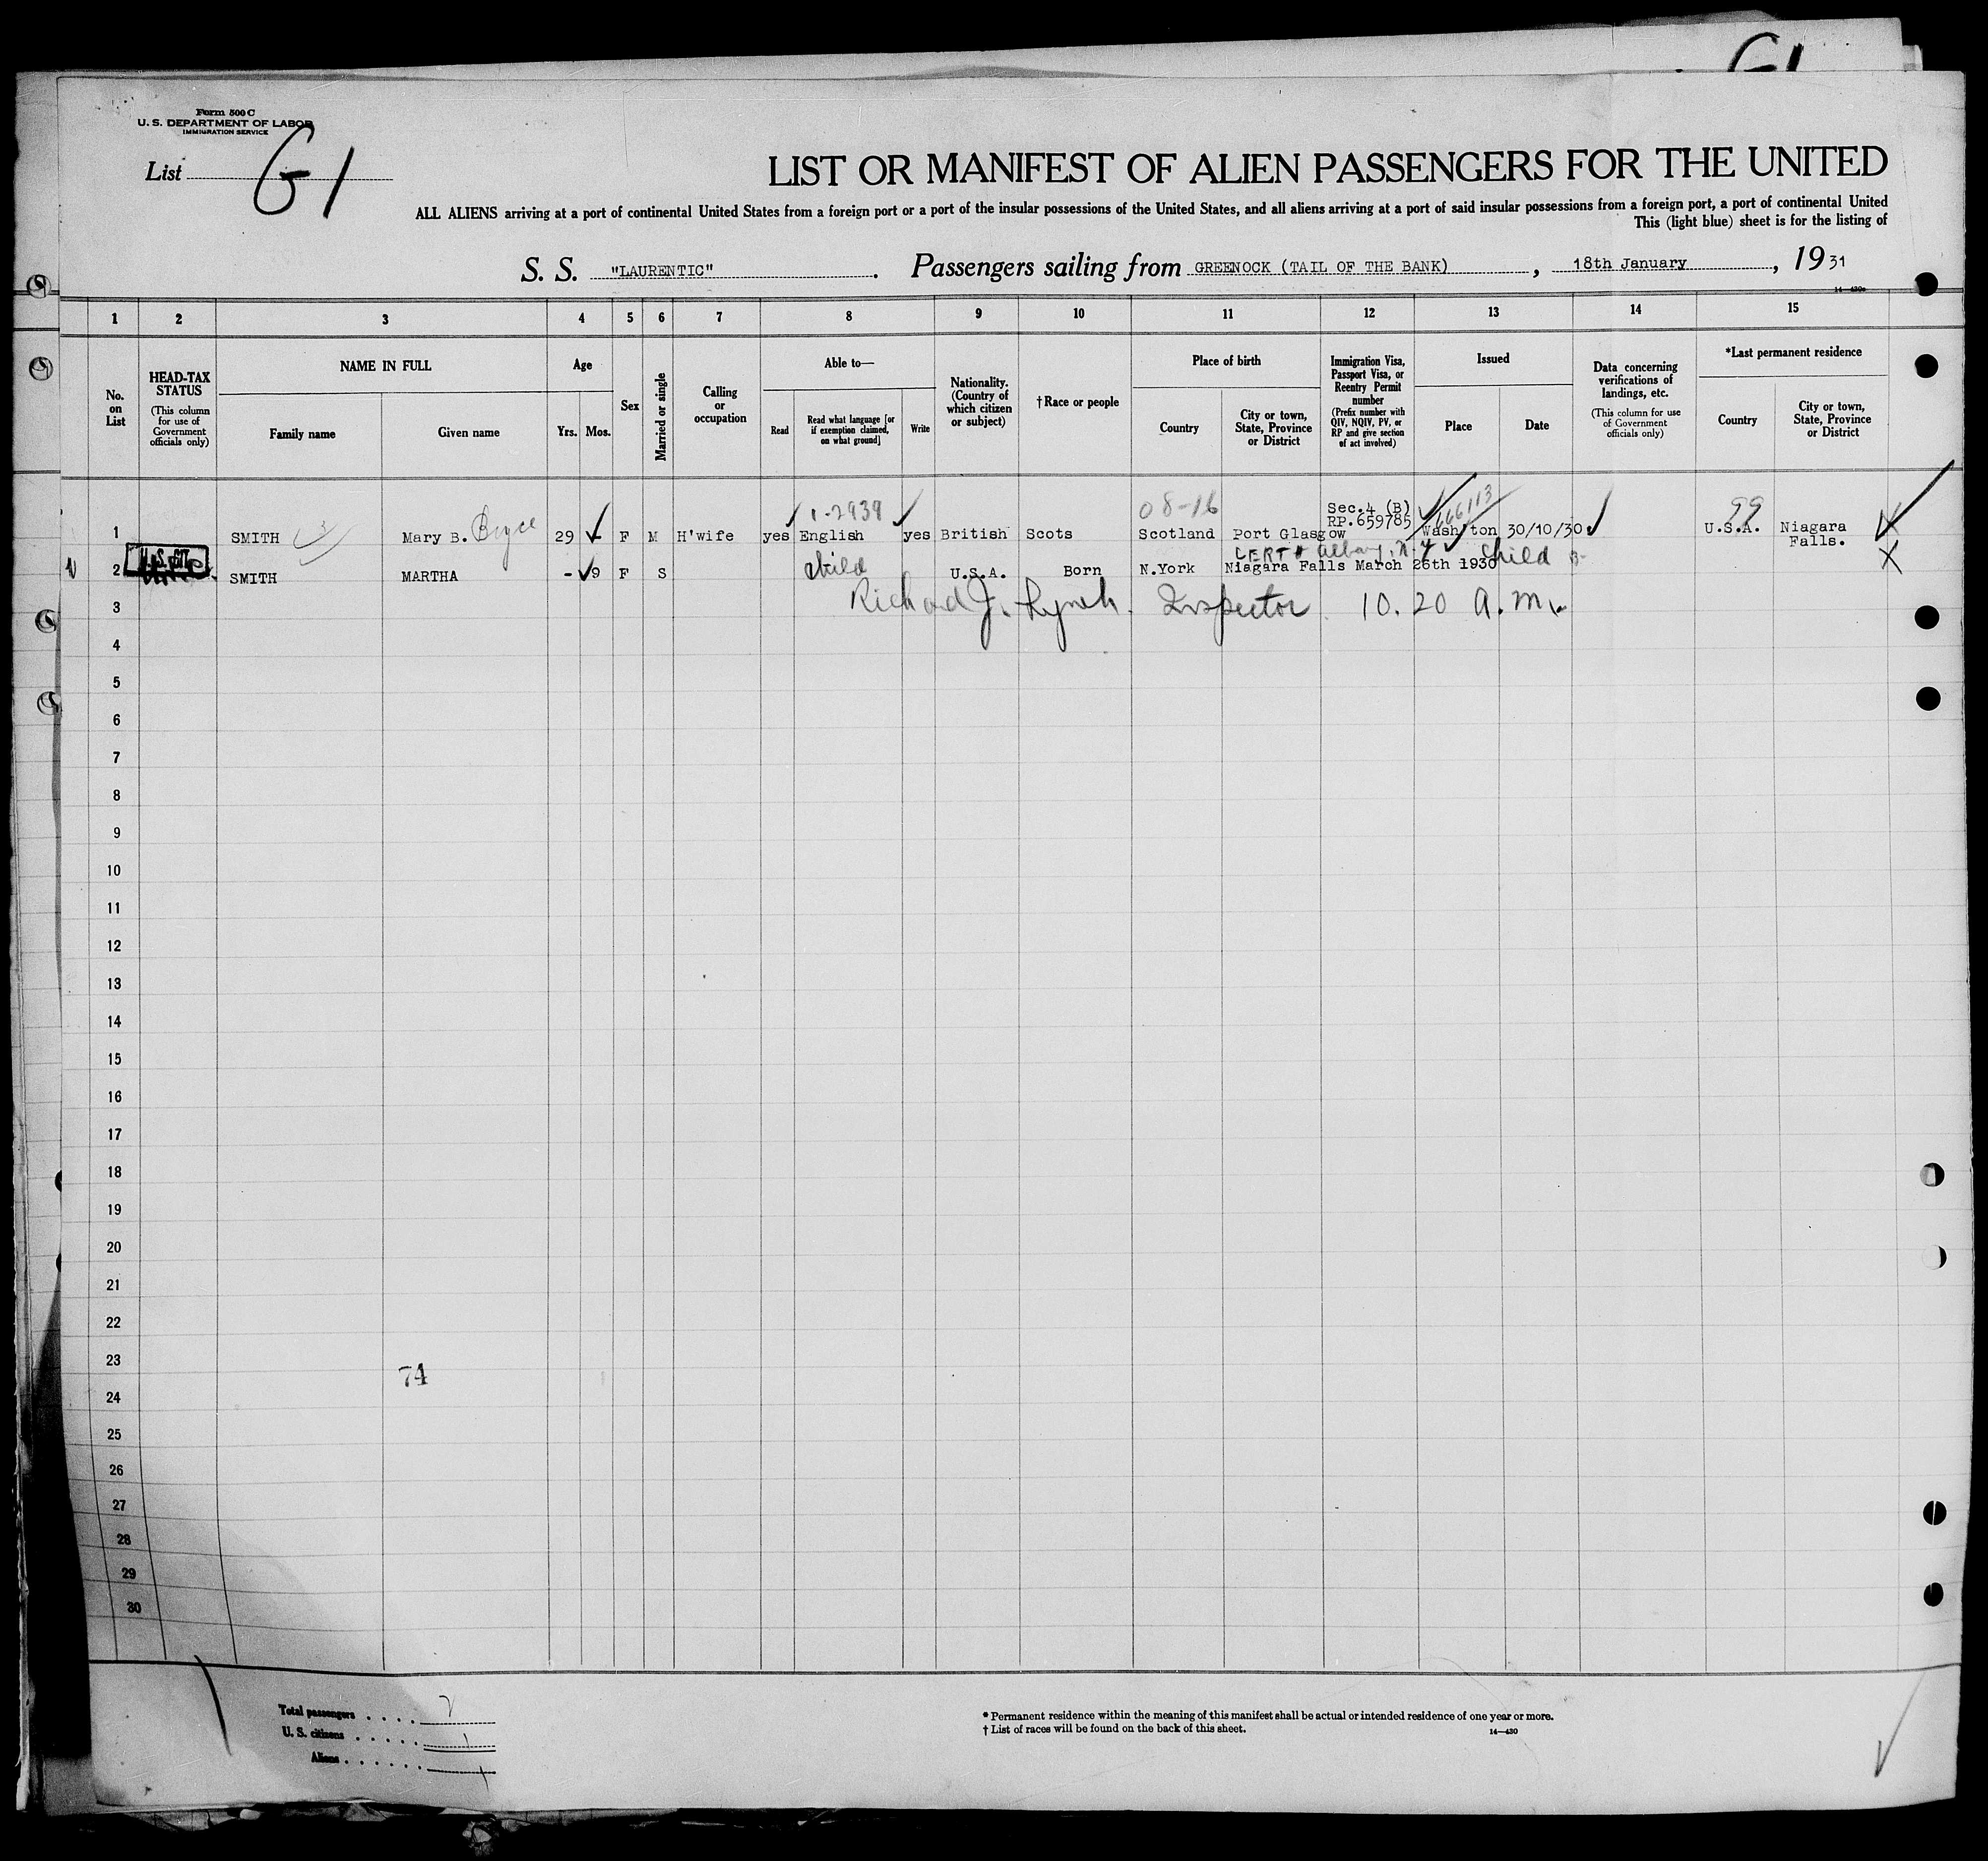 G1
Form 500 C
U. S. DEPARTMENT OF LABOR
IMMIGRATION SERVICE
List G1
LIST OR MANIFEST OF ALIEN PASSENGERS FOR THE UNITED
ALL ALIENS arriving at a port of continental United States from a foreign port or a port of the insular possessions of the United States, and all aliens arriving at a port of said insular possessions from a foreign port, a port of continental United
This (light blue) sheet is for the listing of
S. S. "LAURENTIC". Passengers sailing from GREENOCK (TAIL OF THE BANK), 18th January, 1931
1 2 3 4 5 6 7 8 9 10 11 12 13 14 15
No. on List
HEAD-TAX STATUS
(This column for use of Government officials only)
NAME IN FULL
Family name
Given name
Age
Yrs. Mos.
Sex
Married or single
Calling or occupation
Able to—
Read
Read what language [or if exemption claimed, on what ground]
Write
Nationality. (Country of which citizen or subject)
† Race or people
Place of birth
Country
City or town, State, Province or District
Immigration Visa, Passport Visa, or Reentry Permit number
(Prefix number with QIV, NQIV, PV, or RP and give section of act involved)
Issued
Place
Date
Data concerning verifications of landings, etc.
(This column for use of Government officials only)
*Last permanent residence
Country
City or town, State, Province or District
1-2939 08-16 Sec.4 (B) 666113 99
1 SMITH Mary B. Bryce 29 F M H'wife yes English yes British Scots Scotland Port Glasgow RP.659785 Wash'ton 30/10/30 U.S.A. Niagara Falls.
CERT # Albany. N.Y
2 SMITH MARTHA - 9 F S child U.S.A. Born N.York Niagara Falls March 26th 1930 child
3 Richard J. Lynch. Inspector 10.20 A.M.
4
5
6
7
8
9
10
11
12
13
14
15
16
17
18
19
20
21
22
23
74
24
25
26
27
28
29
30
Total passengers . . . . 2
U. S. citizens . . . . . 1
Aliens . . . . . . 1
* Permanent residence within the meaning of this manifest shall be actual or intended residence of one year or more.
† List of races will be found on the back of this sheet.
14—430